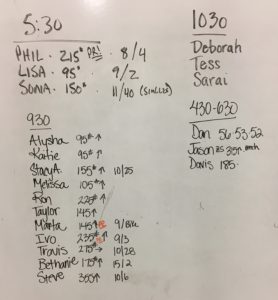 5:30
PHIL · 215# PR! · 8/4
LISA · 95# 9/2
SONIA · 150# 11/40 (SINGLES)
930
Alysha 95# ↑
Katie 95# ↑
Stacy A. 155# ↑ 10/25
Melissa 105# ↑
Ron 225# ↑
Taylor 145 ↑
Marta 145 ↑ 9/Bike
Ivo 235# ↑ 9/3
Travis 275# → 10/28
Bethanie 175# ↑ 15/2
Steve 355 ↑ 10/6
1030
Deborah
Tess
Sarai
430-630
Dan 56·53·52
Jason 35↑
Davis 185